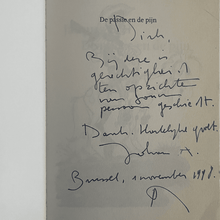 De passie en de pijn
Dirk.
Bij deze is
gerechtigheid
ten opzichte
van jouw
persoon geschied.
Dank. Hartelijke groet.
Johan A.
Brussel, 1 november 1998.